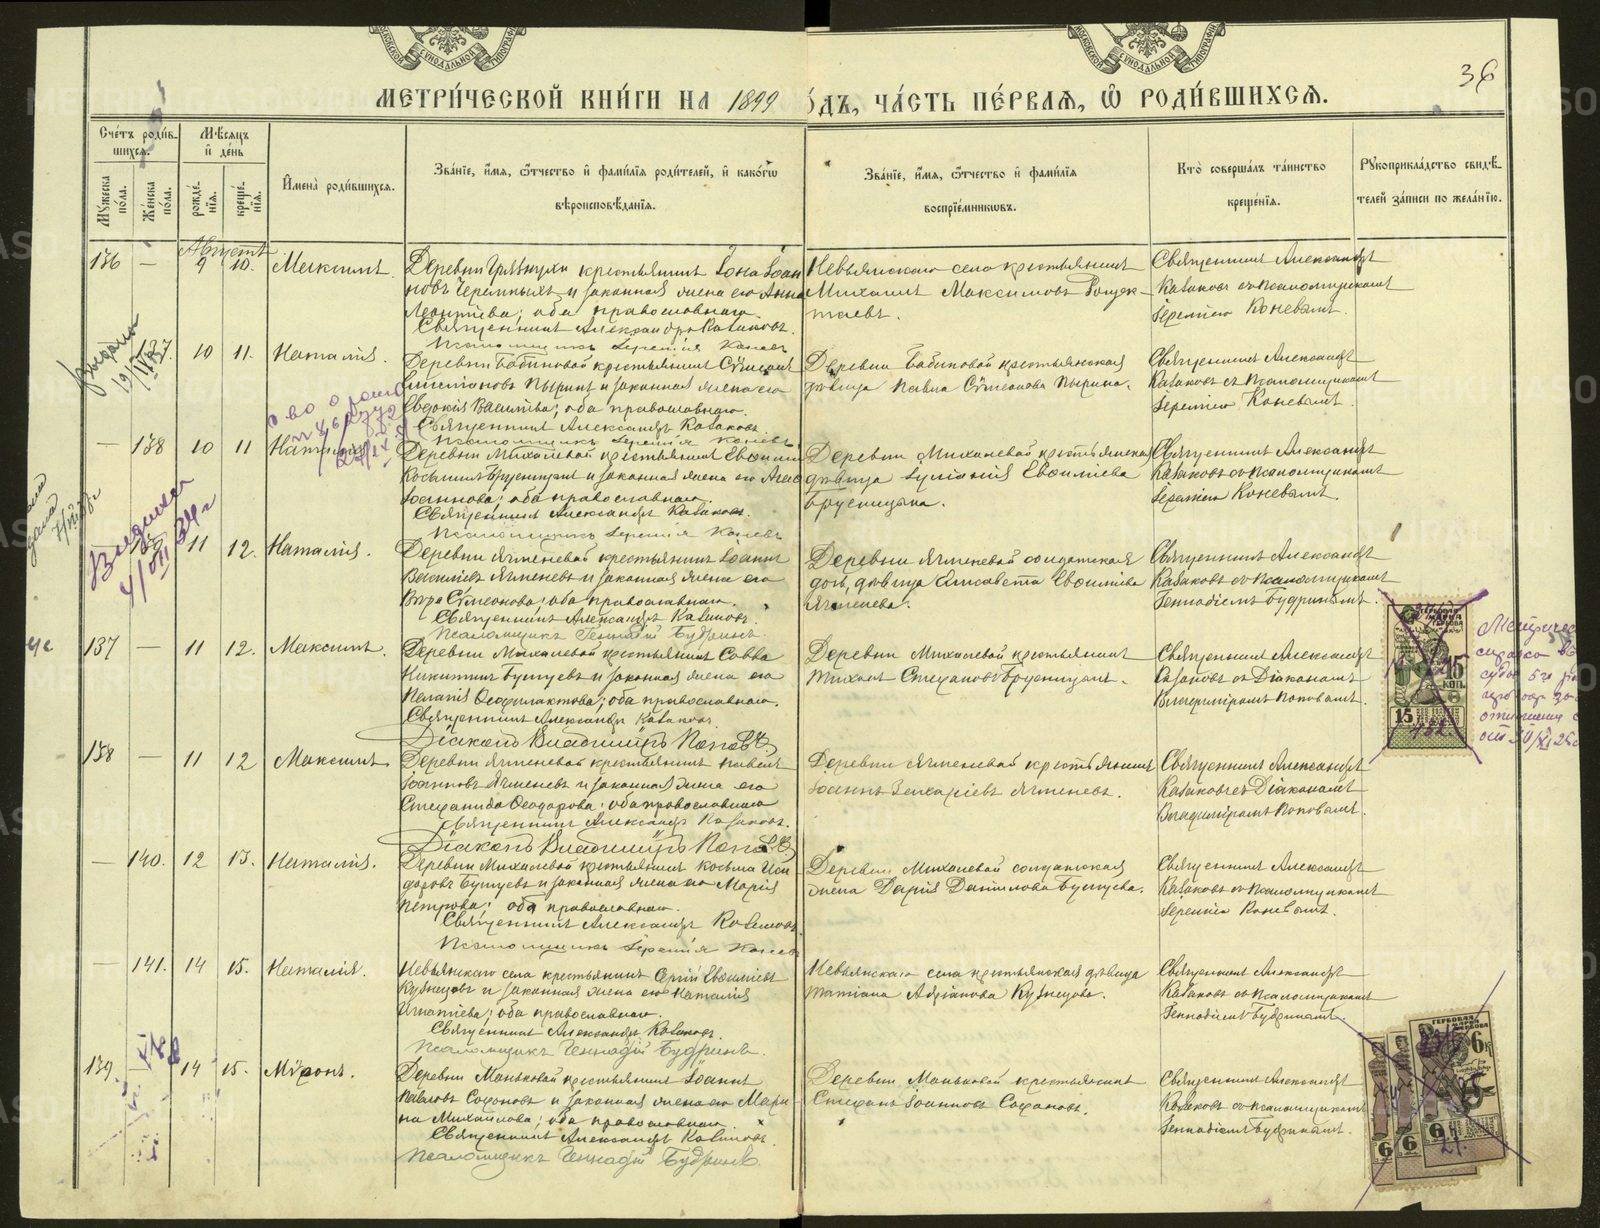 МЕТРИ́ЧЕСКОЙ КНИ́ГИ НА 1899 ГО́ДЪ, ЧА́СТЬ ПЕ́РВАЯ, Ѡ РОДИ́ВШИХСЯ.
36
Сче́тъ роди́в-
шихся.
Мѣ́сяцъ
и҆ де́нь
Му́жеска по́ла.
Же́нска по́ла.
рожде́-
нїя.
креще́-
нїя.
И҆мена̀ роди́вшихся.
Зва́нїе, и҆́мя, ѻ҆́тчество и҆ фами́лїя роди́телей, и҆ како́гѡ
вѣроисповѣ́данїя.
Зва́нїе, и҆́мя, ѻ҆́тчество и҆ фами́лїя
воспрїе́мникѡвъ.
Кто̀ соверша́лъ та́инство
креще́нїя.
Рꙋкоприкла́дство свидѣ́-
телей за́писи по жела́нїю.
Августъ
136 — 9 10. Максимъ.
Деревни Грязнухи крестьянинъ Іона Іоан
новъ Черемныхъ и законная жена его Анна
Леонтіева; оба православнаго.
Священникъ Александръ Казаковъ.
Псаломщикъ Іеремія Коневъ
Невьянскаго села крестьянинъ
Михаилъ Максимовъ
Священникъ Александръ
Казаковъ съ псаломщикомъ
Іереміею Коневымъ.
137. 10 11. Наталія.
Деревни Бабиновой крестьянинъ Сѵмеонъ
Пыринъ и законная жена его
Евдокія Василіева; оба православнаго.
Священникъ Александръ Казаковъ.
Псаломщикъ Іеремія Коневъ.
Деревни Бабиновой крестьянская
дѣвица Павла Сѵмеонова Пырина.
Священникъ Александръ
Казаковъ съ псаломщикомъ
Іереміею Коневымъ.
— 138 10 11 Наталія
Деревни Михалевой крестьянинъ Евѳимій
Косьминъ Брусницынъ и законная жена его
Іоаннова; оба православнаго.
Священникъ Александръ Казаковъ.
Псаломщикъ Іеремія Коневъ
Деревни Михалевой крестьянская
дѣвица Іуліанія Евѳиміева
Брусницына.
Священникъ Александръ
Казаковъ съ псаломщикомъ
Іереміею Коневымъ.
139 11 12. Наталія.
Деревни Ячменевой крестьянинъ Іоаннъ
Василіевъ Ячменевъ и законная жена его
Вѣра Сѵмеонова; оба православнаго.
Священникъ Александръ Казаковъ.
Псаломщикъ Геннадій Будринъ.
Деревни Ячменевой солдатская
дочь, дѣвица Елисавета Евѳиміева
Ячменева.
Священникъ Александръ
Казаковъ съ псаломщикомъ
Геннадіемъ Будринымъ.
137 — 11 12. Максимъ.
Деревни Михалевой крестьянинъ Савва
Никитинъ Бушуевъ и законная жена его
Пелагія Ѳеофилактова; оба православнаго.
Священникъ Александръ Казаковъ.
Діаконъ Владиміръ Поповъ
Деревни Михалевой крестьянинъ
Михаилъ Стефановъ Брусницынъ.
Священникъ Александръ
Казаковъ съ Діакономъ
Владиміромъ Поповымъ.
138 — 11 12 Максимъ
Деревни Ячменевой крестьянинъ Павелъ
Іоанновъ Ячменевъ и законная жена его
Стефанида Ѳеодорова; оба православнаго
Священникъ Александръ Казаковъ.
Діаконъ Владиміръ Поповъ
Деревни Ячменевой крестьянинъ
Іоаннъ Захаріевъ Ячменевъ.
Священникъ Александръ
Казаковъ съ Діакономъ
Владиміромъ Поповымъ.
— 140. 12 13. Наталія.
Деревни Михалевой крестьянинъ Косьма Иси
доровъ Бушуевъ и законная жена его Марія
Петрова; оба православнаго.
Священникъ Александръ Казаковъ.
Псаломщикъ Іеремія Коневъ
Деревни Михалевой солдатская
жена Дарія Данилова Бушуева.
Священникъ Александръ
Казаковъ съ псаломщикомъ
Іереміею Коневымъ.
— 141. 14 15. Наталія.
Невьянскаго села крестьянинъ Сергій Евѳиміевъ
Кузнецовъ и законная жена его Наталія
Игнатіева; оба православнаго.
Священникъ Александръ Казаковъ.
Псаломщикъ Геннадій Будринъ.
Невьянскаго села крестьянская дѣвица
Татіана Адріанова Кузнецова.
Священникъ Александръ
Казаковъ съ псаломщикомъ
Геннадіемъ Будринымъ.
139. 14 15. Мѵронъ.
Деревни Маньковой крестьянинъ Іоаннъ
Павловъ Софоновъ и законная жена его Мари
на Михайлова; оба православнаго.
Священникъ Александръ Казаковъ.
Псаломщикъ Геннадій Будринъ.
Деревни Маньковой крестьянинъ
Стефанъ Іоанновъ Софоновъ.
Священникъ Александръ
Казаковъ съ псаломщикомъ
Геннадіемъ Будринымъ.
15 КОП.
15
6к
6
6
6